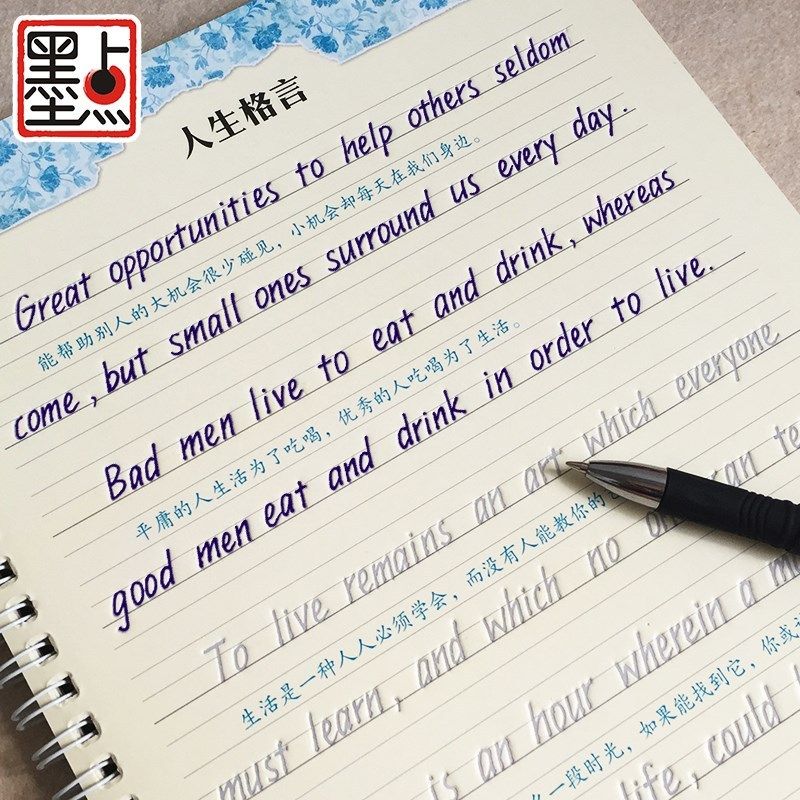 墨点
人生格言
Great opportunities to help others seldom
能帮助别人的大机会很少碰见，小机会却每天在我们身边。
come, but small ones surround us every day.
Bad men live to eat and drink, whereas
平庸的人生活为了吃喝，优秀的人吃喝为了生活。
good men eat and drink in order to live.
To live remains an art which everyone
生活是一种人人必须学会，而没有人能教你的
must learn, and which no one can te
is an hour wherein a m
一段时光，如果能找到它，你或
life, could